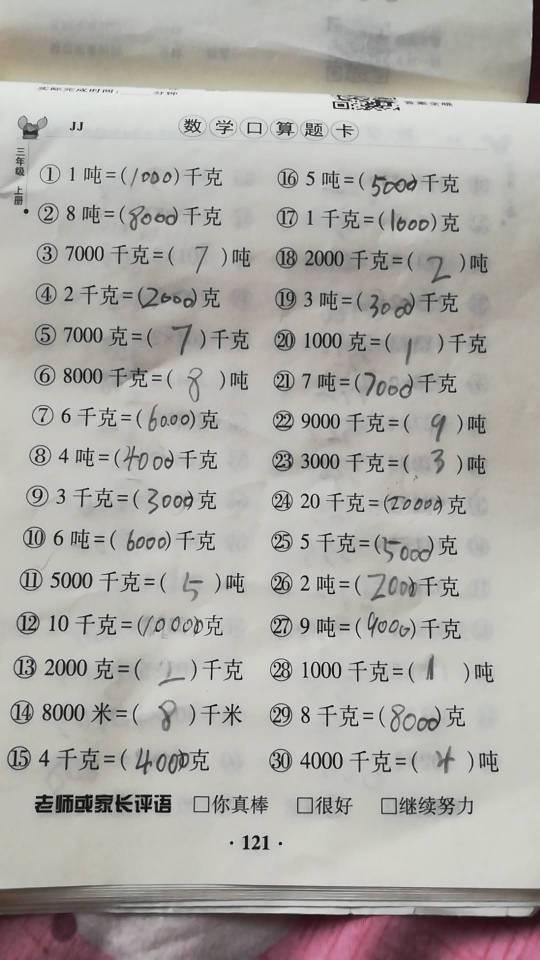 实际完成时间: 分钟
三年级 上册
JJ
数学口算题卡
① 1 吨=(1000)千克
② 8 吨=(8000)千克
③ 7000 千克=(7)吨
④ 2 千克=(2000)克
⑤ 7000 克=(7)千克
⑥ 8000 千克=(8)吨
⑦ 6 千克=(6000)克
⑧ 4 吨=(4000)千克
⑨ 3 千克=(3000)克
⑩ 6 吨=(6000)千克
⑪ 5000 千克=(5)吨
⑫ 10 千克=(10000)克
⑬ 2000 克=(2)千克
⑭ 8000 米=(8)千米
⑮ 4 千克=(4000)克
⑯ 5 吨=(5000)千克
⑰ 1 千克=(1000)克
⑱ 2000 千克=(2)吨
⑲ 3 吨=(3000)千克
⑳ 1000 克=(1)千克
㉑ 7 吨=(7000)千克
㉒ 9000 千克=(9)吨
㉓ 3000 千克=(3)吨
㉔ 20 千克=(20000)克
㉕ 5 千克=(5000)克
㉖ 2 吨=(2000)千克
㉗ 9 吨=(9000)千克
㉘ 1000 千克=(1)吨
㉙ 8 千克=(8000)克
㉚ 4000 千克=(4)吨
老师或家长评语 □你真棒 □很好 □继续努力
·121·